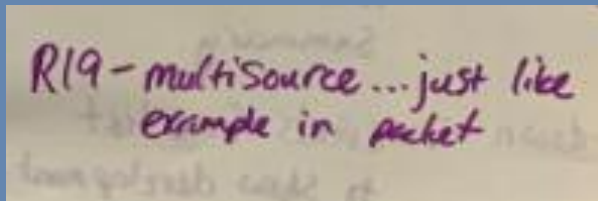 R19 - multisource... just like
example in packet